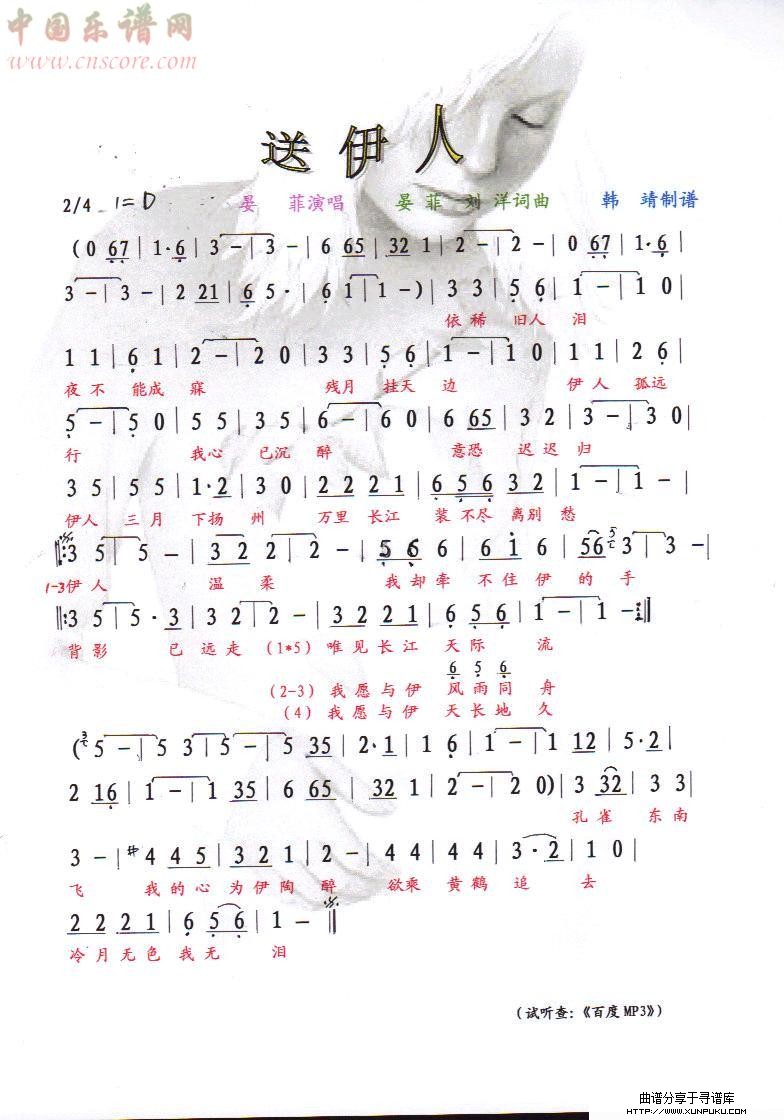 中国乐谱网
www.cnscore.com
送伊人
2/4 1=D 晏 菲演唱 晏 菲 刘 洋词曲 韩 靖制谱
(0 67 | 1·6 | 3 – | 3 – | 6 65 | 32 1 | 2 – | 2 – | 0 67 | 1·6 |
3 – | 3 – | 2 21 | 6 5· | 6 1 | 1 –) | 3 3 | 5 6 | 1 – | 1 0 |
依稀 旧人 泪
1 1 | 6 1 | 2 – | 2 0 | 3 3 | 5 6 | 1 – | 1 0 | 1 1 | 2 6 |
夜不 能成 寐 残月 挂天 边 伊人 孤远
5 – | 5 0 | 5 5 | 3 5 | 6 – | 6 0 | 6 65 | 3 2 | 3 – | 3 0 |
行 我心 已沉 醉 意恐 迟迟 归
3 5 | 5 5 | 1·2 | 3 0 | 2 2 2 1 | 6 5 6 3 2 | 1 – | 1 – |
伊人 三月 下扬 州 万里 长江 装不尽 离别 愁
‖: 3 5 | 5 – | 3 2 2 | 2 – | 5 6 | 6 1 6 | 56 3 | 3 – |
1-3伊人 温柔 我却牵 不住伊 的 手
‖: 3 5 | 5· 3 | 3 2 | 2 – | 3 2 2 1 | 6 5 6 | 1 – | 1 – :‖
背影 已 远走 (1*5) 唯见长江 天际 流
6 5 6
(2-3) 我愿与伊 风雨同 舟
(4) 我愿与伊 天长地 久
(5 – | 5 3 | 5 – | 5 35 | 2·1 | 1 6 | 1 – | 1 12 | 5·2 |
2 16 | 1 – | 1 35 | 6 65 | 32 1 | 2 – | 2 0) | 3 32 | 3 3 |
孔雀 东南
3 – | #4 4 5 | 3 2 1 | 2 – | 4 4 | 4 4 | 3·2 | 1 0 |
飞 我的心 为伊陶 醉 欲乘 黄鹤 追 去
2 2 2 1 | 6 5 6 | 1 – ‖
冷月无色 我无 泪
(试听查:《百度MP3》)
曲谱分享于寻谱库
WWW.XUNPUKU.COM